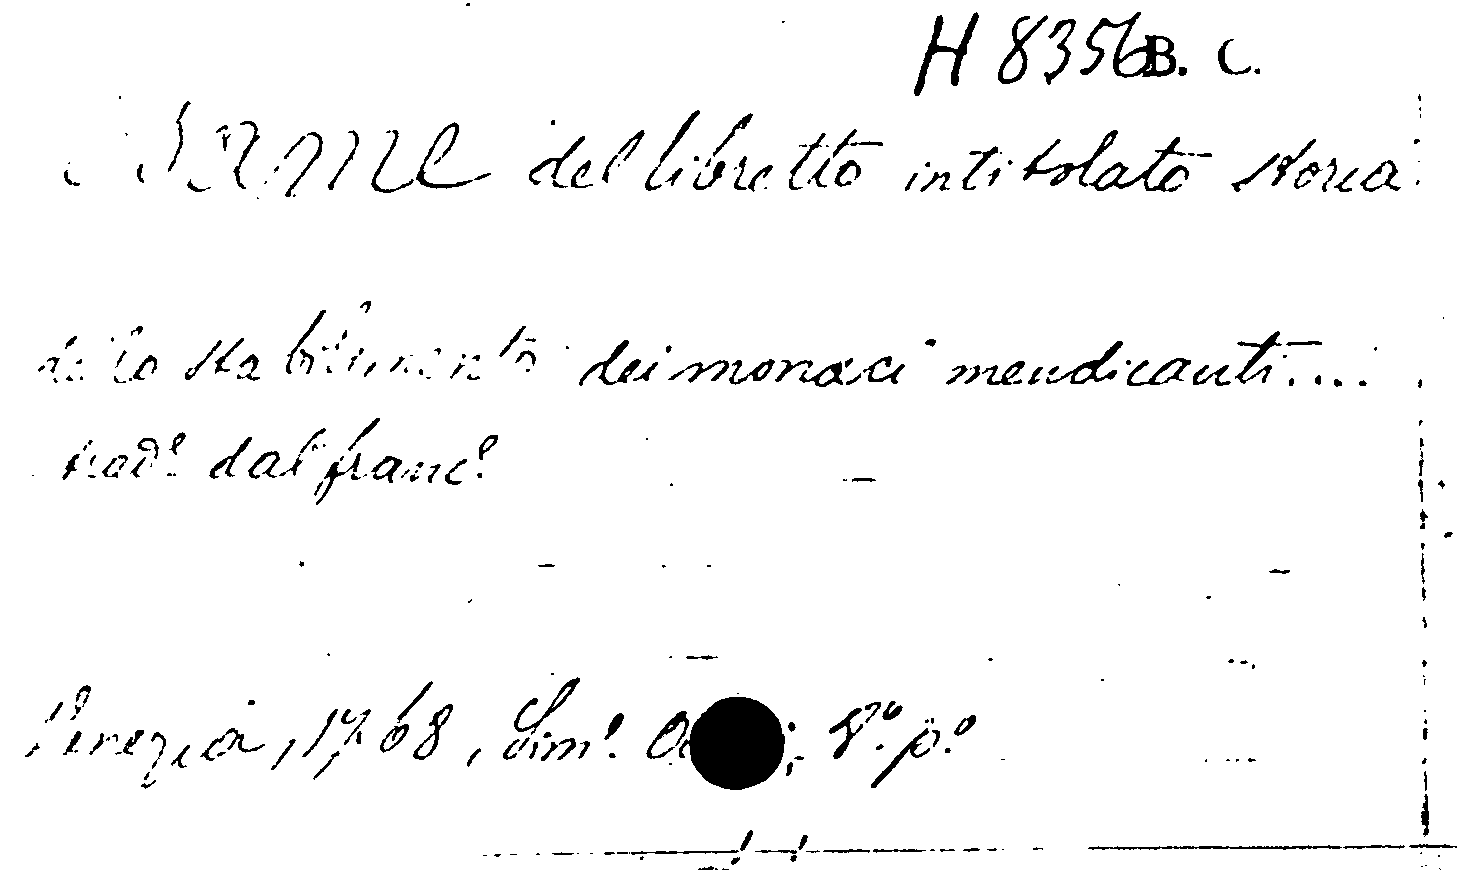 H 8356 B. C.
Esame del libretto intitolato Storia
dello Stabilimento dei monaci mendicanti....
trad.e dal franc.e
Venezia, 1768, Sim.e 8.o p.o